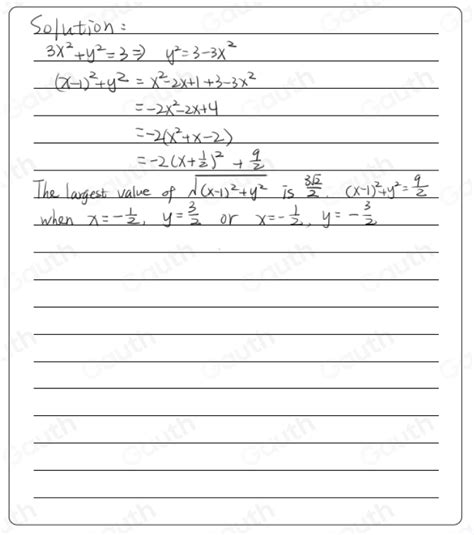 Solution:
3x²+y²=3 ⇒ y²=3-3x²
(x-1)²+y² = x²-2x+1+3-3x²
=-2x²-2x+4
=-2(x²+x-2)
=-2(x+1/2)²+9/2
The largest value of √(x-1)²+y² is 3√2/2. (x-1)²+y²=9/2
when x=-1/2, y=3/2 or x=-1/2, y=-3/2